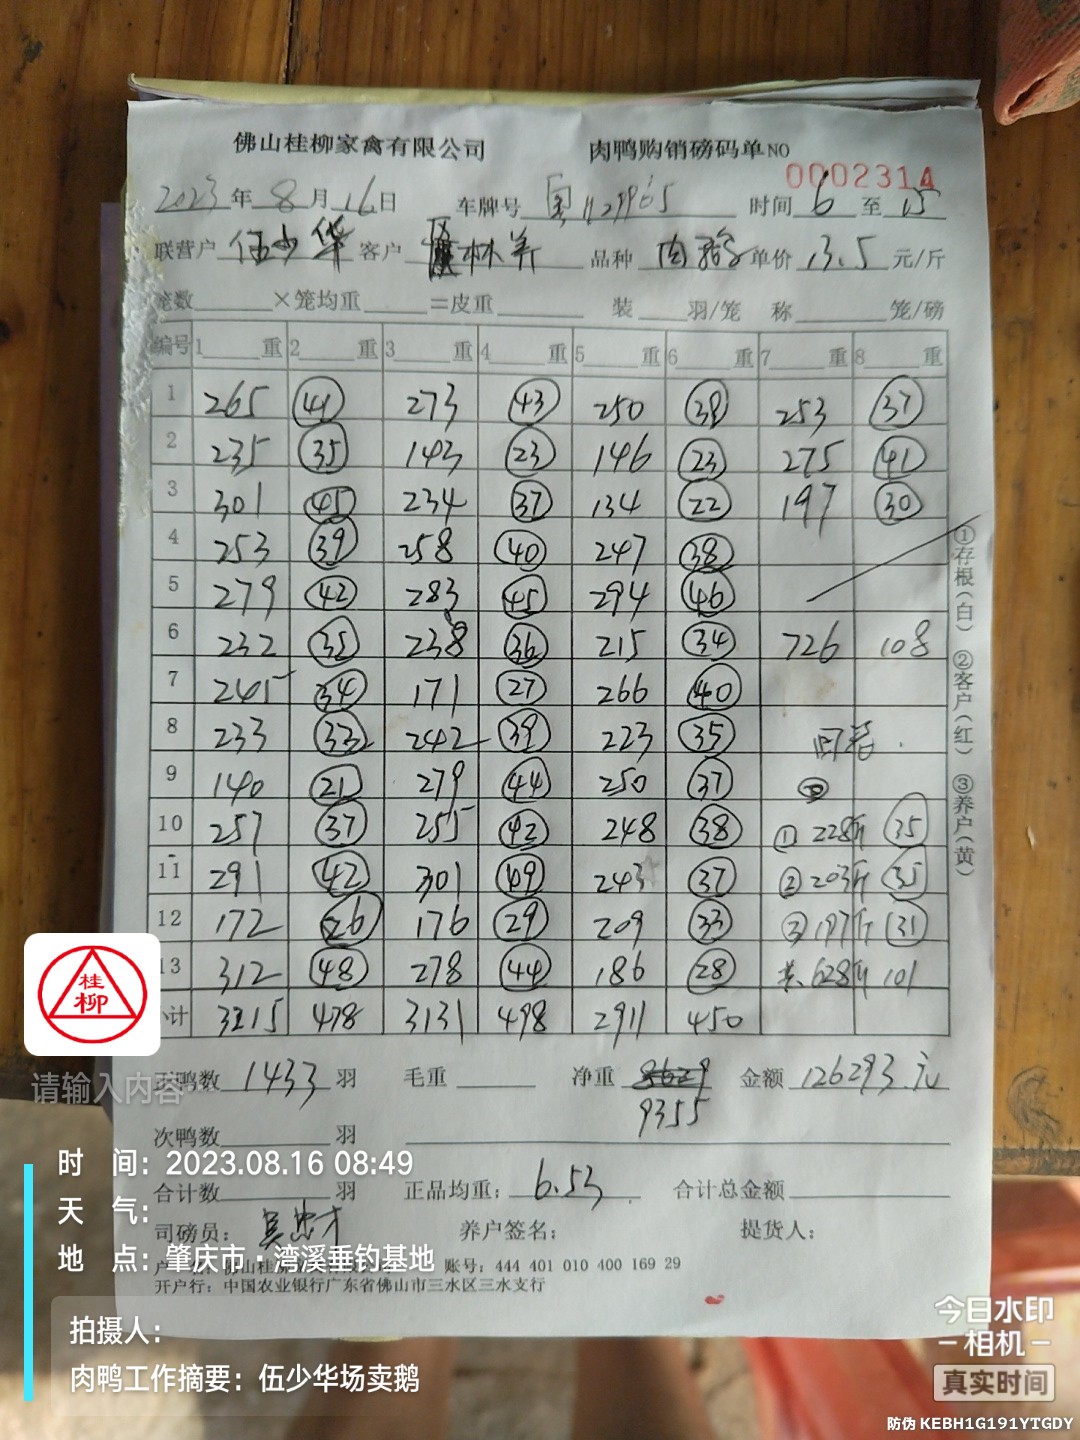 佛山桂柳家禽有限公司 肉鸭购销磅码单NO 0002314
2023年 8月 16日 车牌号 时间 6 至 15
联营户 伍少华 客户 林养 品种 肉鹅 单价 13.5 元/斤
笼数 ×笼均重 =皮重 装 羽/笼 称 笼/磅
编号 1 重 2 重 3 重 4 重 5 重 6 重 7 重 8 重
1 265 41 273 43 250 39 253 37
2 235 35 143 23 146 23 275 41
3 301 45 234 37 134 22 197 30
4 253 39 258 40 247 38
5 279 42 283 45 294 46
6 232 35 238 36 215 34 726 108
7 245 34 171 27 266 40
8 233 33 242 39 223 35
9 140 21 279 44 250 37
10 257 37 255 42 248 38 ① 228斤 35
11 291 42 301 49 243 37 ② 203斤 35
12 172 26 176 29 209 33 ③ 197斤 31
13 312 48 278 44 186 28 共 628斤 101
小计 3215 478 3131 498 2911 450
①存根(白) ②客户(红) ③养户(黄)
正鸭数 1433 羽 毛重 净重 8629 金额 126293.元
9355
次鸭数 羽
合计数 羽 正品均重: 6.53 合计总金额
司磅员: 吴忠才 养户签名: 提货人:
账号: 444 401 010 400 169 29
开户行: 中国农业银行广东省佛山市三水区三水支行
桂柳
请输入内容
时 间: 2023.08.16 08:49
天 气:
地 点: 肇庆市·湾溪垂钓基地
拍摄人:
肉鸭工作摘要: 伍少华场卖鹅
今日水印
-相机-
真实时间
防伪 KEBH1G191YTGDY